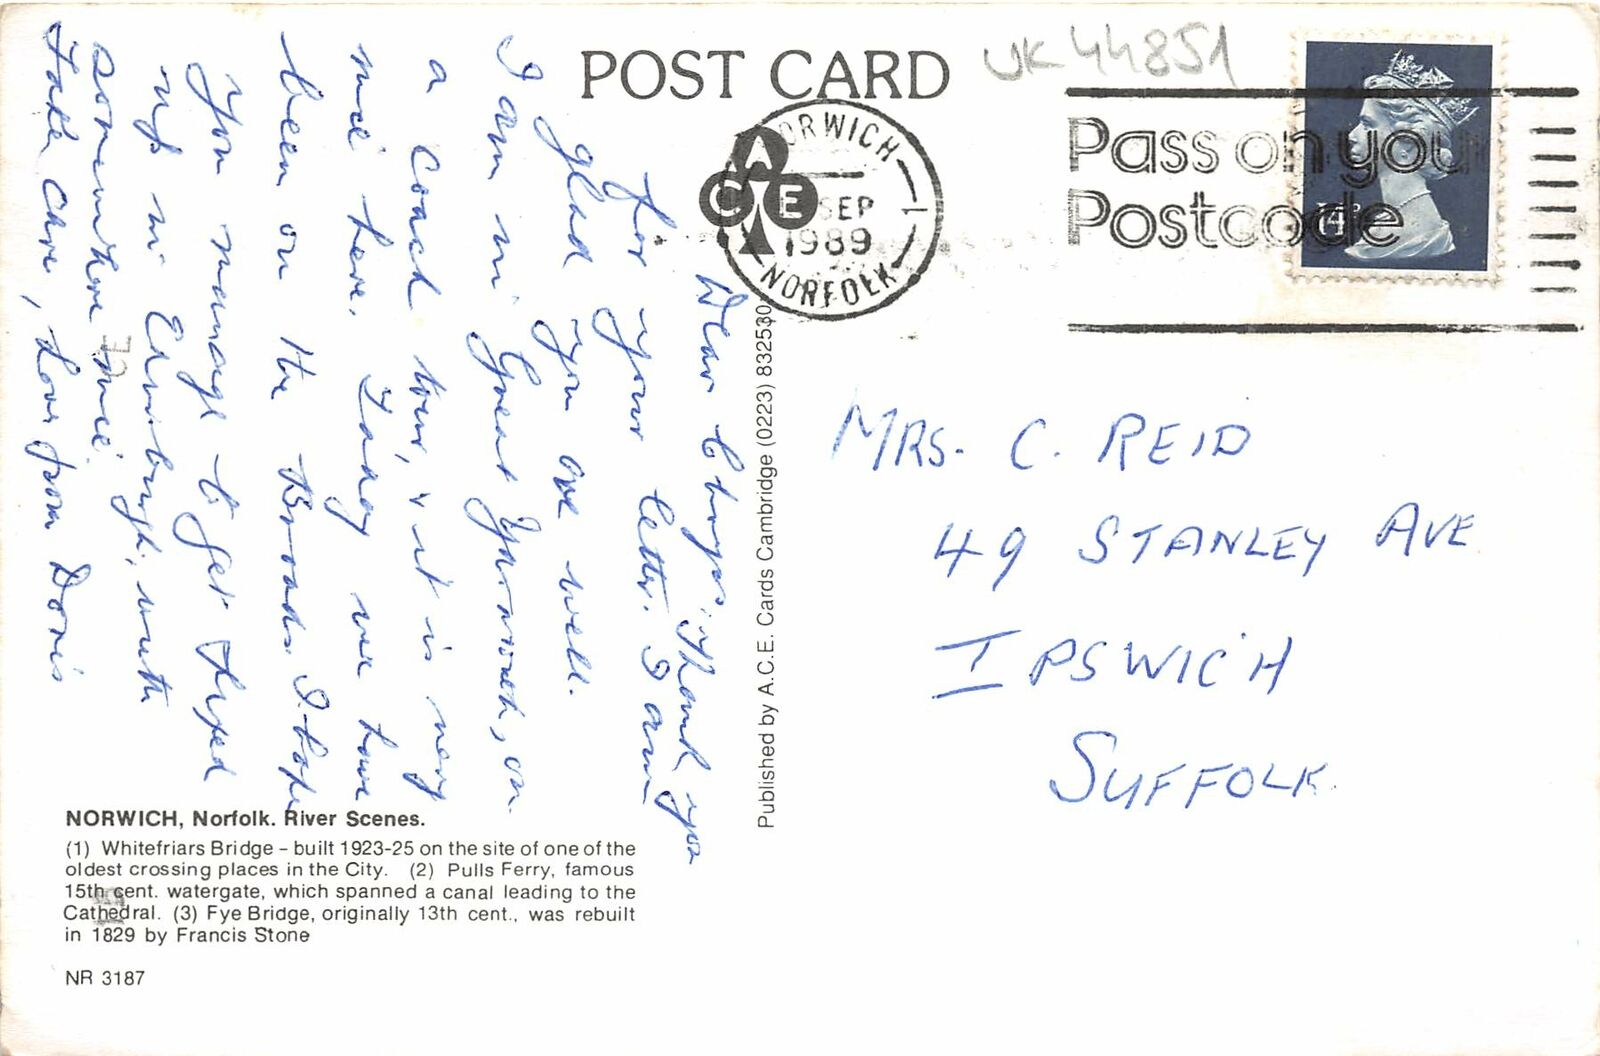 POST CARD
UK 44851
NORWICH
SEP
1989
NORFOLK
ACE
Pass on your
Postcode
14P
Dear Chrys, Thank you
for your letter. I am
glad you are well.
I am in Great Yarmouth, on
a coach tour, & it is very
nice here. Today we have
been on the Broads. I hope
you manage to get fixed
up in Edinburgh, with
somewhere nice.
Take care, Love from Doris
MRS. C. REID
49 STANLEY AVE
IPSWICH
SUFFOLK.
Published by A.C.E. Cards Cambridge (0223) 832530
NORWICH, Norfolk. River Scenes.
(1) Whitefriars Bridge – built 1923-25 on the site of one of the
oldest crossing places in the City. (2) Pulls Ferry, famous
15th cent. watergate, which spanned a canal leading to the
Cathedral. (3) Fye Bridge, originally 13th cent., was rebuilt
in 1829 by Francis Stone
NR 3187